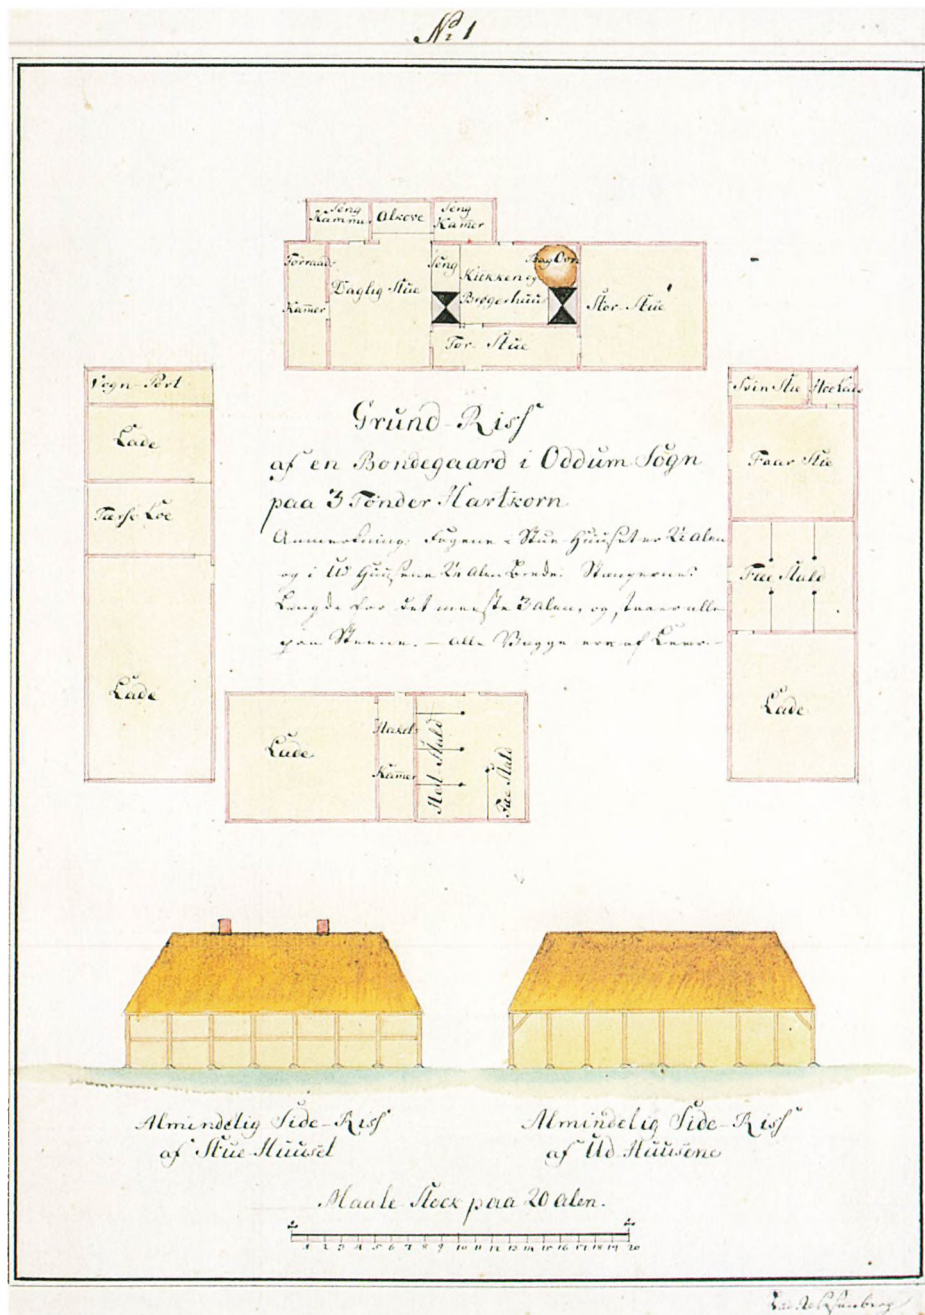 No 1
Seng Kammer
Alkove
Seng Kamer
Forraads Kamer
Daglig Stue
Seng
Kiökken og Brygerhuus
Bag Ovn
Stor-Stue
For-Stue
Vogn-Port
Lade
Tærske Loe
Lade
Sviin Stie
Hoe Lade
Faar Stie
Fæe Stald
Lade
Grund-Riss
af en Bondegaard i Oddum Sogn
paa 3 Tönder Hartkorn
Anmerkning. Fagene i Stue-Huuset er 2½ Alen
og i Ud Huusene Alen Brede. Stolpernes
Længde for det meeste 3 Alen, og staaer alle
paa Steene. — Alle Vægge ere af Leer. —
Lade
Hakels Kamer
Hest-Stald
Fæe Stald
Almindelig Side-Riss
af Stue-Huuset
Almindelig Side-Riss
af Ud-Huusene
Maale-Stock paa 20 Alen.
1 2 3 4 5 6 7 8 9 10 11 12 13 14 15 16 17 18 19 20